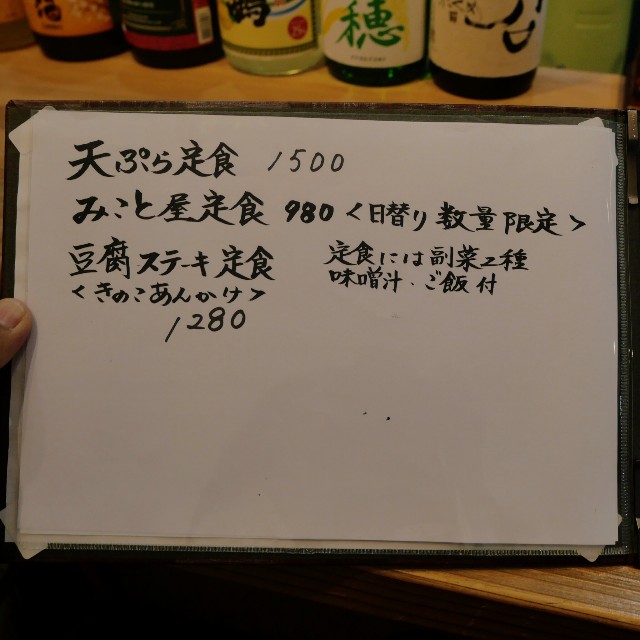 鶴
穂
天ぷら定食 1500
みこと屋定食 980 <日替り 数量限定>
豆腐ステーキ定食
<きのこあんかけ>
1280
定食には副菜2種
味噌汁・ご飯付